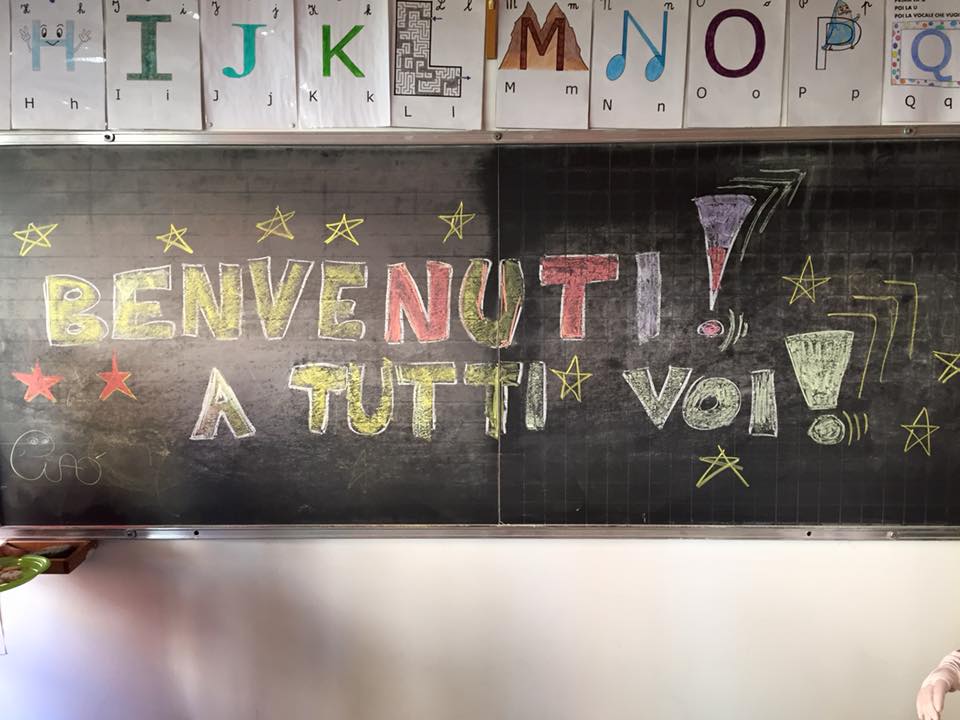 H I J K L M N O P Q
H h I i J j K k L l M m N n O o P p Q q
POI LA U
POI LA VOCALE CHE VUOI
BENVENUTI!
A TUTTI VOI!
Ciao